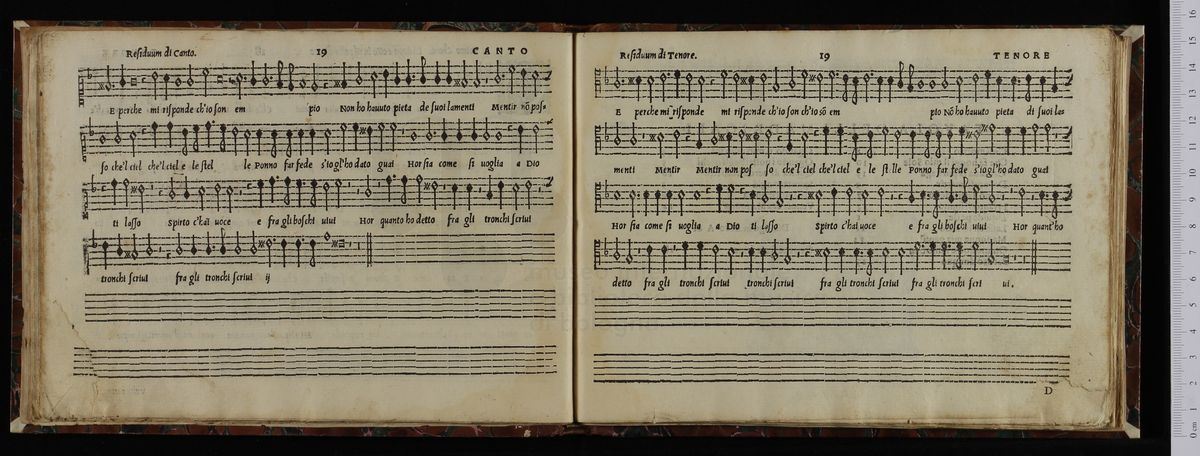 Residuum di Canto. 19 CANTO
E perche mi risponde ch'io son em pio Non ho hauuto pieta de suoi lamenti Mentir nō pos=
so che'l ciel che'l ciel e le stel le Ponno far fede s'io gl'ho dato guai Hor sia come si uoglia a Dio
ti lasso spirto c'hai uoce e fra gli boschi uiui Hor quanto ho detto fra gli tronchi scriui
tronchi scriui fra gli tronchi scriui ij
Residuum di Tenore. 19 TENORE
E perche mi risponde mi risponde ch'io son ch'io sō em pio Nō ho hauuto pieta di suoi la=
menti Mentir Mentir non pos so che'l ciel che'l ciel e le stelle Ponno far fede s'io gl'ho dato guai
Hor sia come si uoglia a Dio ti lasso spirto c'hai uoce e fra gli boschi uiui Hor quant'ho
detto fra gli tronchi scriui tronchi scriui fra gli tronchi scriui fra gli tronchi scri ui.
D
0 cm 1 2 3 4 5 6 7 8 9 10 11 12 13 14 15 16